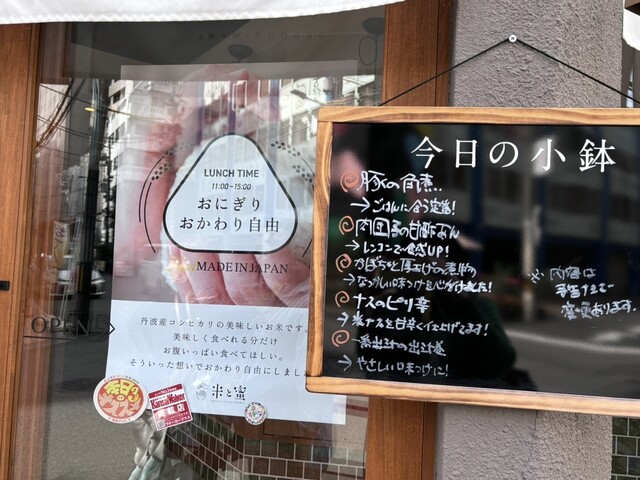 LUNCH TIME
11:00-15:00
おにぎり
おかわり自由
MADE IN JAPAN
丹波産コシヒカリの美味しいお米です。
美味しく食べれる分だけ
お腹いっぱい食べてほしい。
そういった想いでおかわり自由にしまし
米と蜜
OPEN
KansaiWalker
掲載店
今日の小鉢
豚の角煮
→ごはんに合う定番!
肉団子の甘酢あん
→レンコンで食感UP!
かぼちゃと厚あげの煮物
→なつかしい味つけを心がけました!
ナスのピリ辛
→米ナスを甘辛く仕上げてます!
→やさしい味つけに!
※内容は
予告なしに
変更あります。